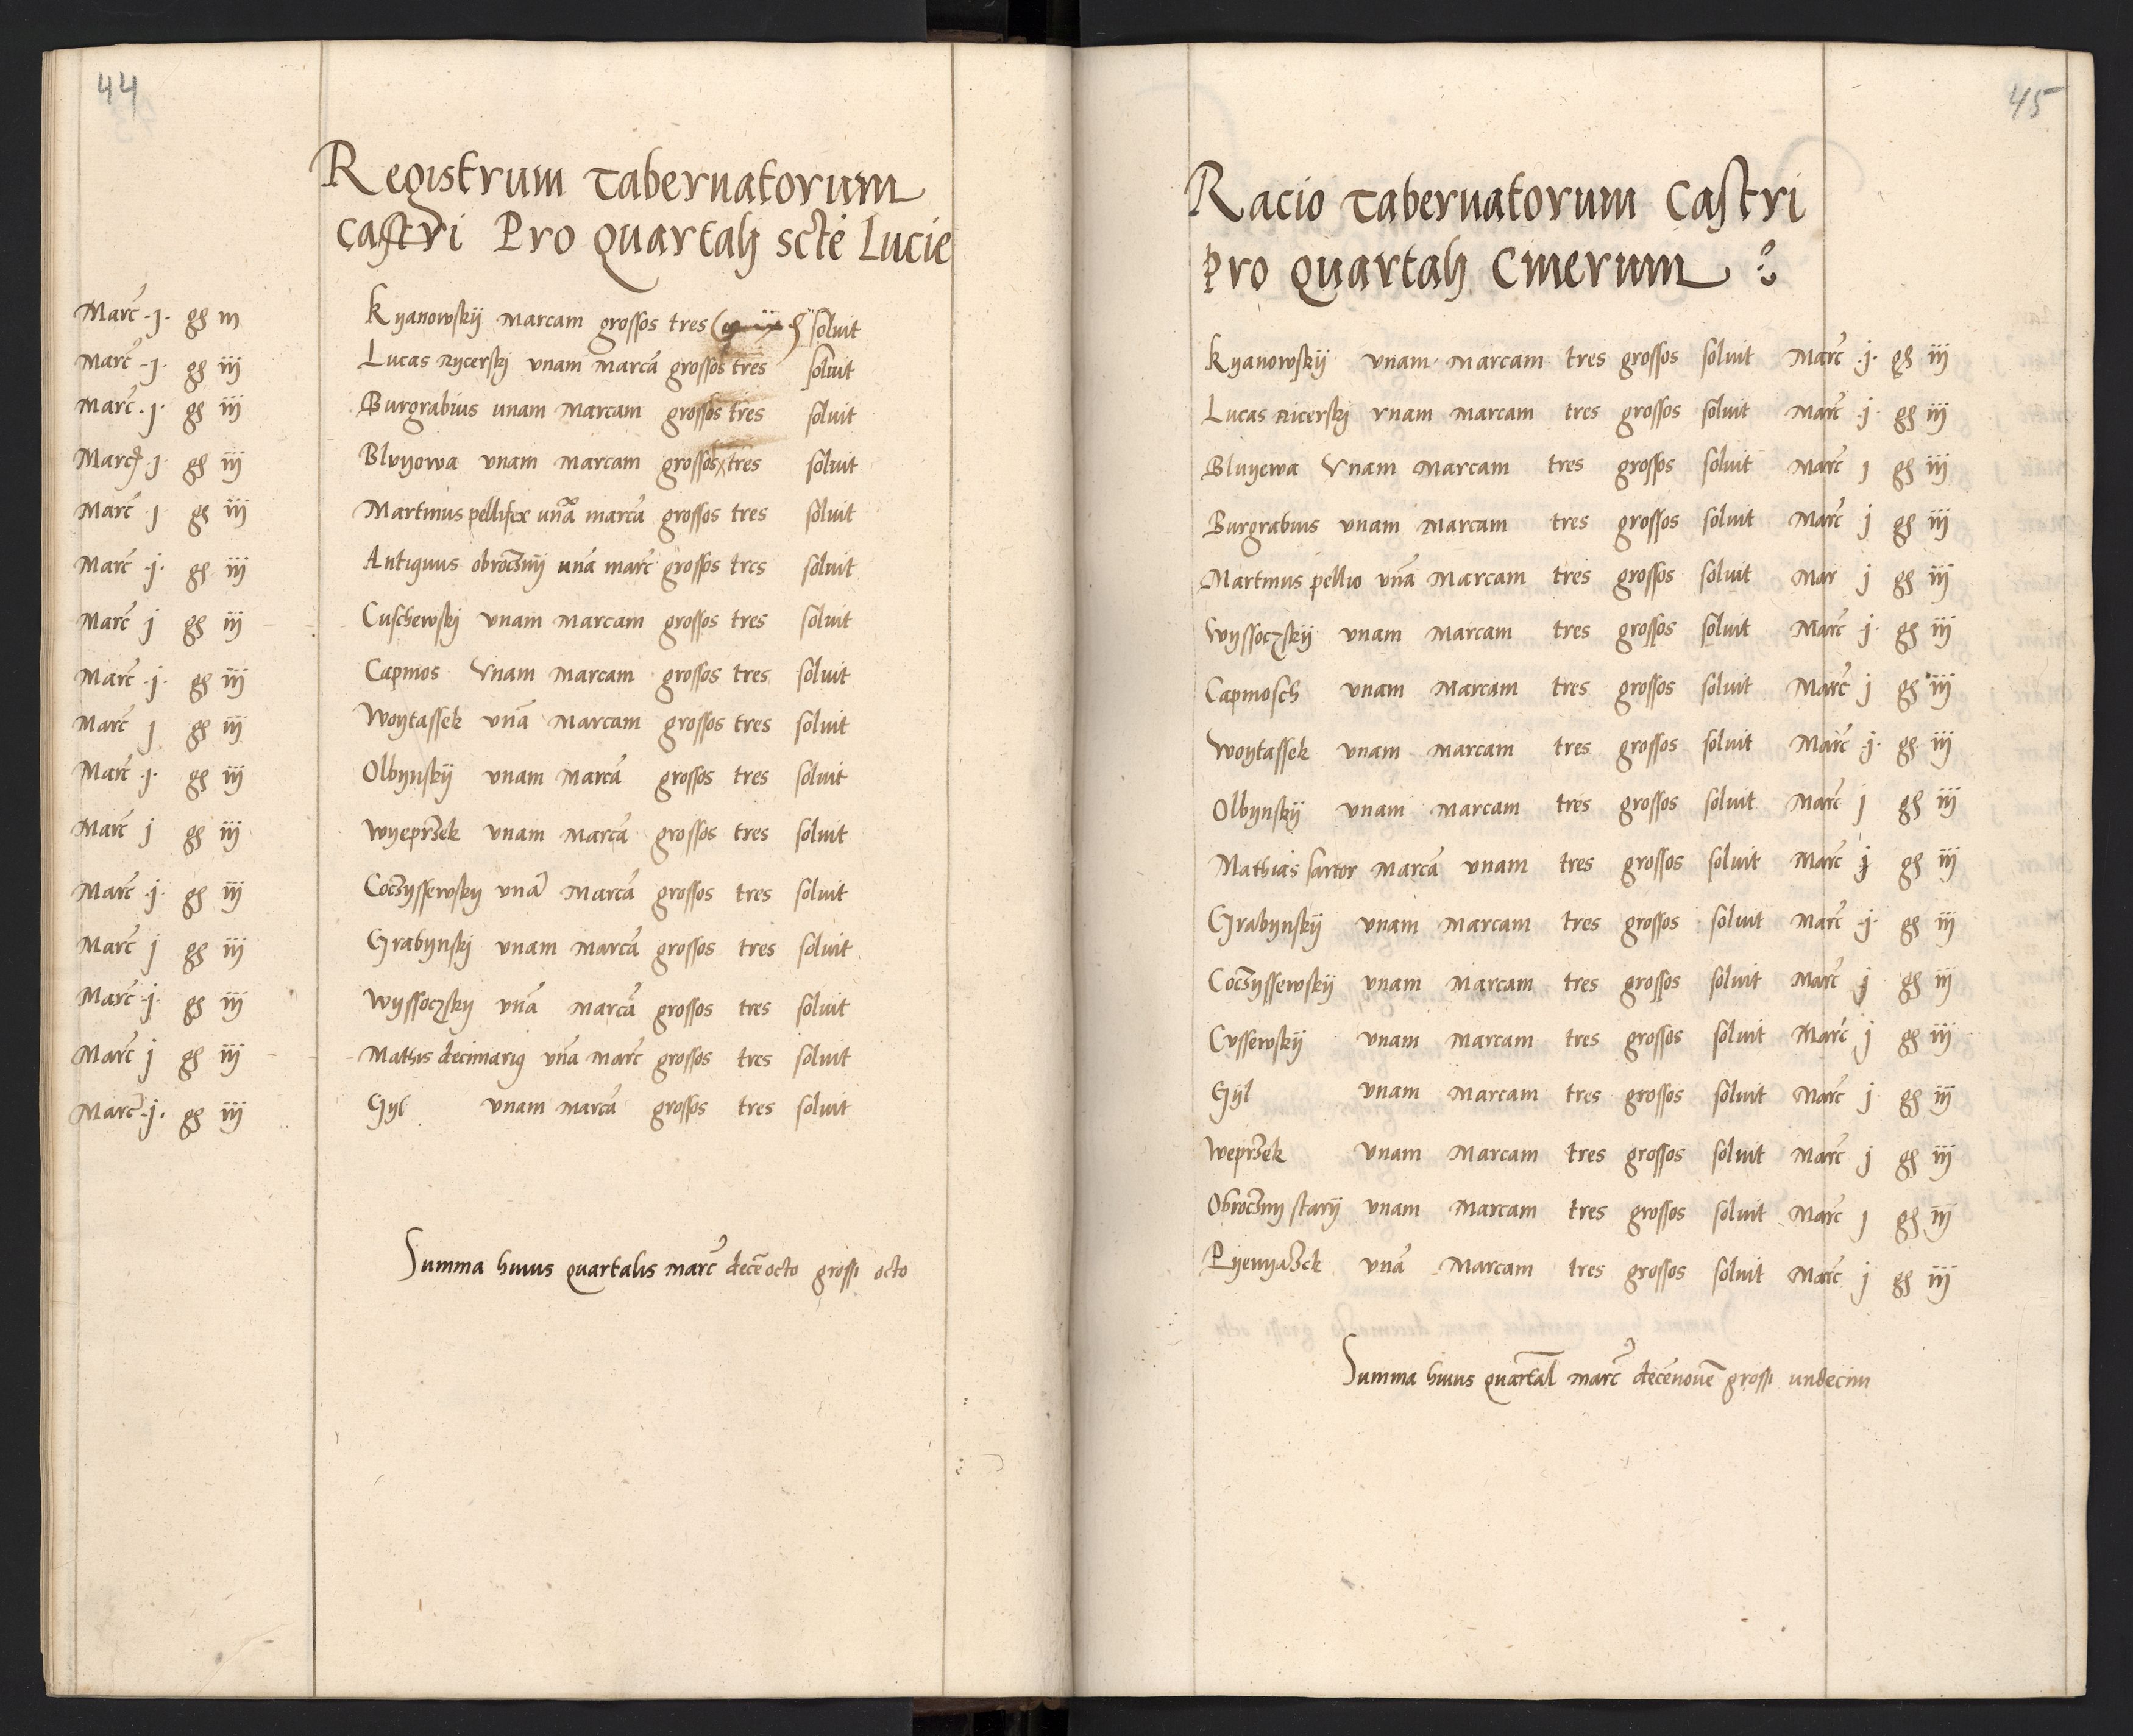 44
Registrum Tabernatorum
Castri Pro Quartalj scte Lucie
Marc .j. gs iij Kyanowskij Marcam grossos tres soluit
Marc .j. gs iij Lucas Rycerskj unam Marcā grossos tres soluit
Marc .j. gs iij Burgrabius unam Marcam grossos tres soluit
Marc .j. gs iij Blvyowa unam Marcam grossos tres soluit
Marc j gs iij Martinus pellifex unā marcā grossos tres soluit
Marc .j. gs iij Antiquus obroczny unā marc grossos tres soluit
Marc j gs iij Cuschewskj unam Marcam grossos tres soluit
Marc .j. gs iij Capinos Vnam Marcam grossos tres soluit
Marc j gs iij Woytassek unā Marcam grossos tres soluit
Marc .j. gs iij Olbynskij unam Marcā grossos tres soluit
Marc j gs iij Wyeprzek unam Marcā grossos tres soluit
Marc .j. gs iij Coczyssewsky unā Marcā grossos tres soluit
Marc j gs iij Grabynskj unam Marcā grossos tres soluit
Marc .j. gs iij Wyssoczsky unā Marcā grossos tres soluit
Marc j gs iij Mathis decimariq unā Marc grossos tres soluit
Marc .j. gs iij Gyl unam Marcā grossos tres soluit
Summa huius quartalis marc decē octo grossi octo
45
Racio Tabernatorum Castri
Pro Quartalj Cinerum
Kyanowskij unam Marcam tres grossos soluit Marc .j. gs iij
Lucas Ricerskj vnam Marcam tres grossos soluit Marc .j. gs iij
Bluyewa Vnam Marcam tres grossos soluit Marc j gs iij
Burgrabius unam Marcam tres grossos soluit Marc j gs iij
Martinus pellio unā Marcam tres grossos soluit Mar j gs iij
Wyssoczskij unam Marcam tres grossos soluit Marc .j. gs iij
Capinosch unam Marcam tres grossos soluit Marc j gs iij
Woytassek unam Marcam tres grossos soluit Marc .j. gs iij
Olbynskij unam Marcam tres grossos soluit Marc j gs iij
Mathias sartor Marcā unam tres grossos soluit Marc j gs iij
Grabynskij unam Marcam tres grossos soluit Marc .j. gs iij
Coczyssewskij unam Marcam tres grossos soluit Marc j gs iij
Cvssewskij unam Marcam tres grossos soluit Marc j gs iij
Gyl unam Marcam tres grossos soluit Marc j gs iij
Weprzek unam Marcam tres grossos soluit Marc j gs iij
Obroczny starij unam Marcam tres grossos soluit Marc j gs iij
Pyenyazek unā Marcam tres grossos soluit Marc j gs iij
Summa huius quartal marc decēnouē grossi undecim